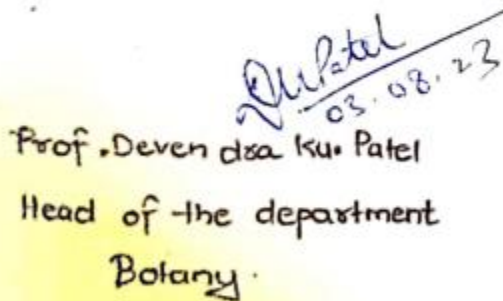 DKPatel
03.08.23
Prof. Devendra Ku. Patel
Head of the department
Botany.